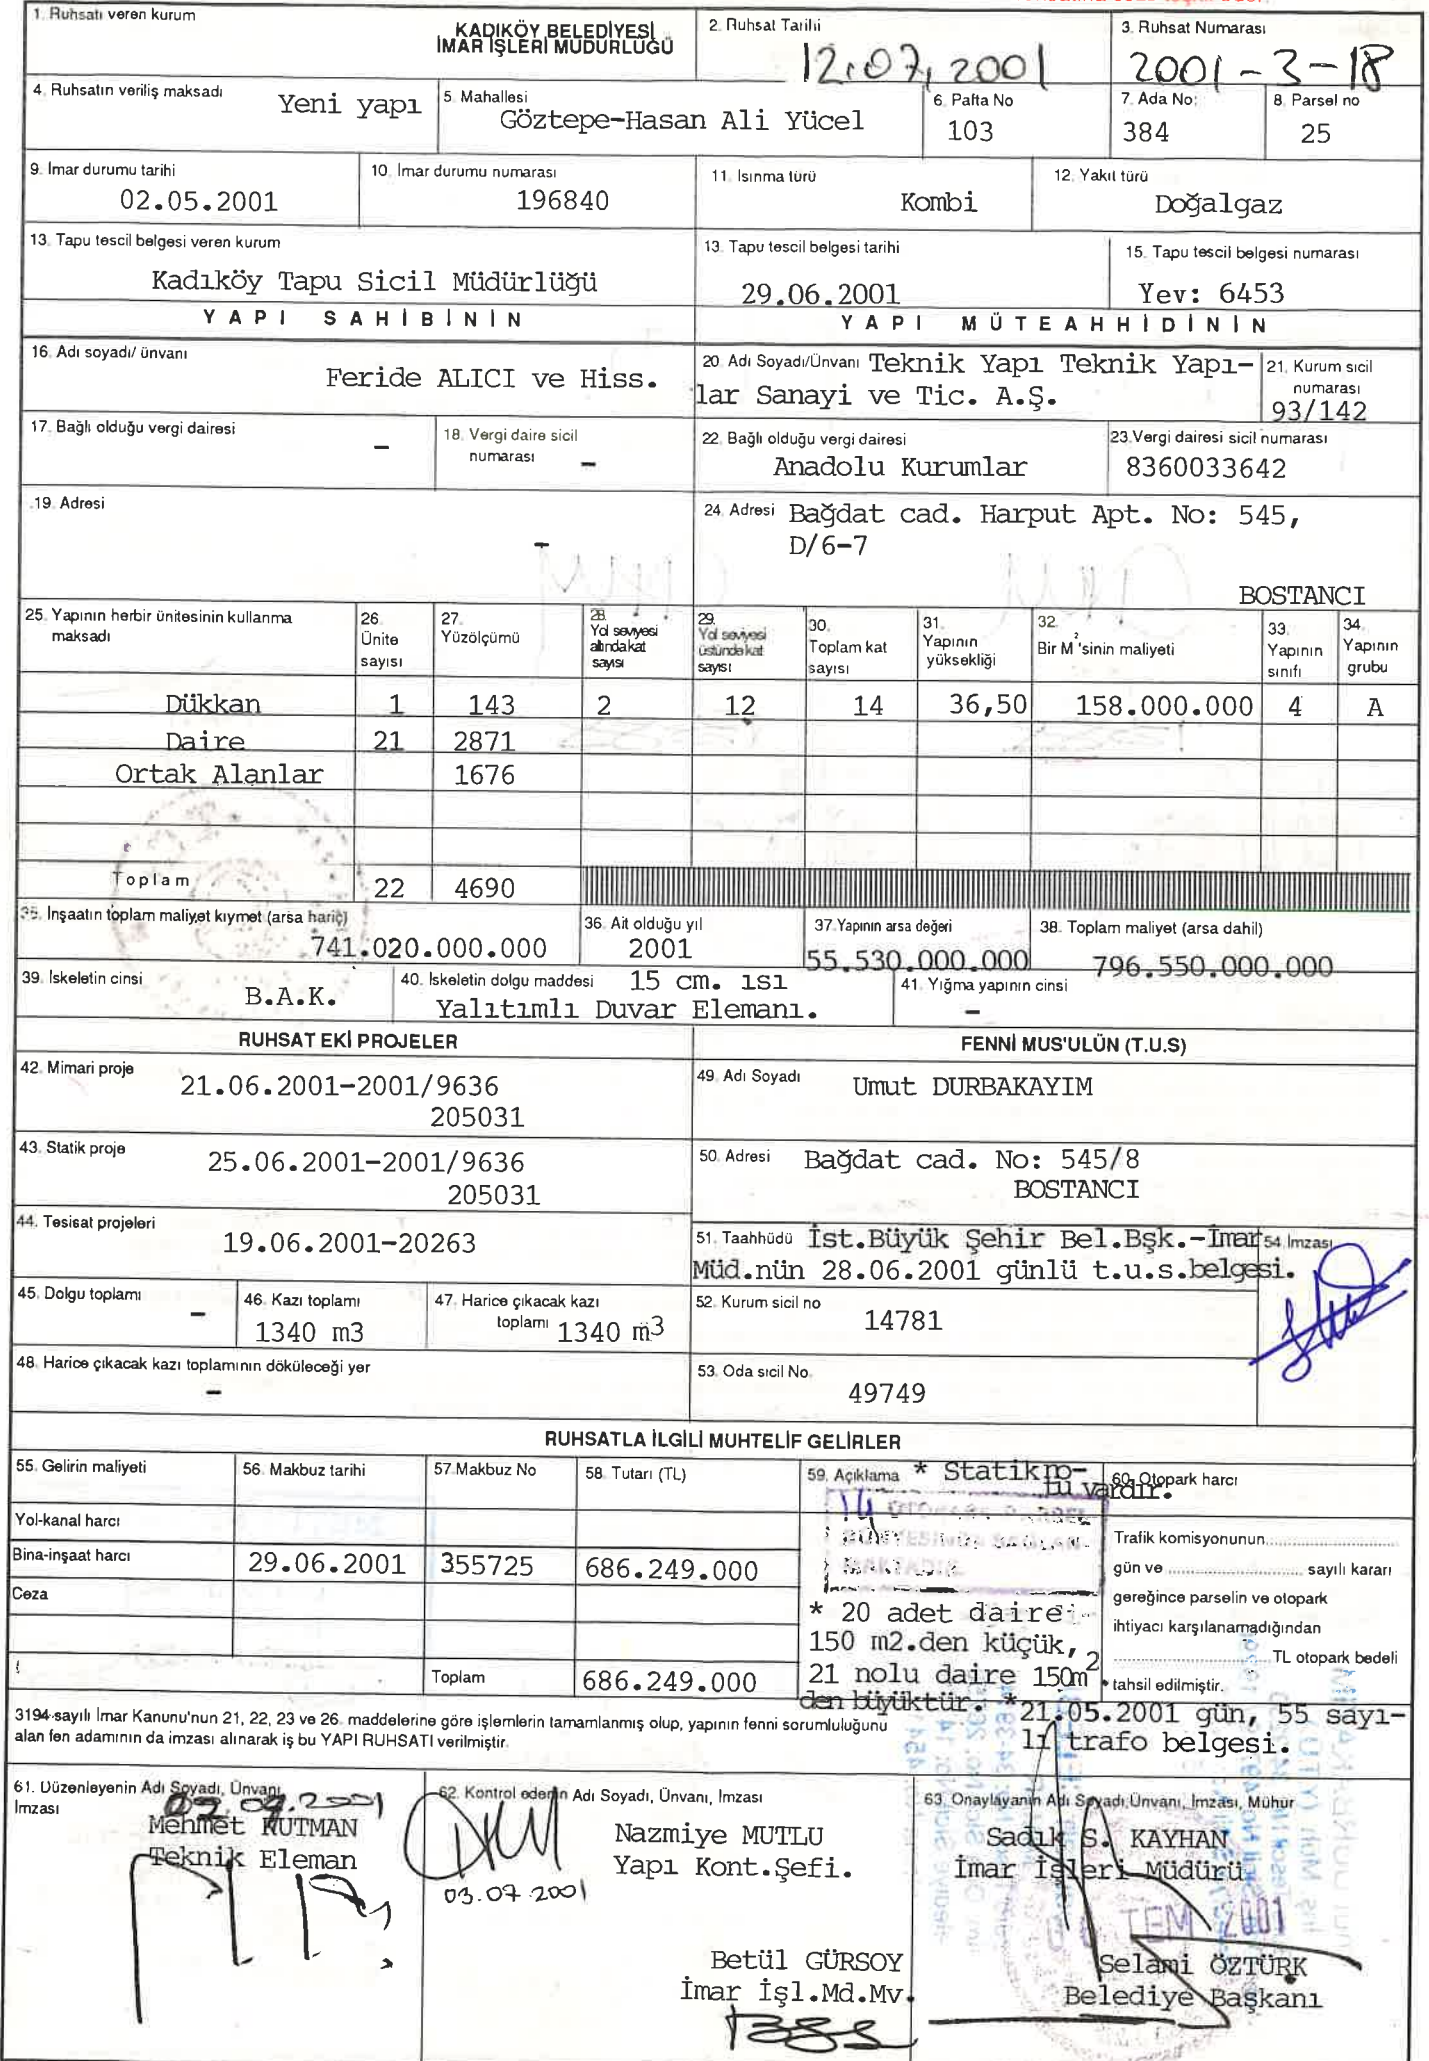 1. Ruhsatı veren kurum
KADIKÖY BELEDİYESİ
İMAR İŞLERİ MÜDÜRLÜĞÜ
2. Ruhsat Tarihi
12.07.2001
3. Ruhsat Numarası
2001-3-18
4. Ruhsatın veriliş maksadı
Yeni yapı
5. Mahallesi
Göztepe-Hasan Ali Yücel
6. Pafta No
103
7. Ada No:
384
8. Parsel no
25
9. İmar durumu tarihi
02.05.2001
10. İmar durumu numarası
196840
11. Isınma türü
Kombi
12. Yakıt türü
Doğalgaz
13. Tapu tescil belgesi veren kurum
Kadıköy Tapu Sicil Müdürlüğü
13. Tapu tescil belgesi tarihi
29.06.2001
15. Tapu tescil belgesi numarası
Yev: 6453
YAPI SAHİBİNİN
YAPI MÜTEAHHİDİNİN
16. Adı soyadı/ ünvanı
Feride ALICI ve Hiss.
20. Adı Soyadı/Ünvanı Teknik Yapı Teknik Yapı-
lar Sanayi ve Tic. A.Ş.
21. Kurum sicil
numarası
93/142
17. Bağlı olduğu vergi dairesi
-
18. Vergi daire sicil
numarası -
22. Bağlı olduğu vergi dairesi
Anadolu Kurumlar
23.Vergi dairesi sicil numarası
8360033642
19. Adresi
-
24. Adresi Bağdat cad. Harput Apt. No: 545,
D/6-7
BOSTANCI
25. Yapının herbir ünitesinin kullanma
maksadı
26.
Ünite
sayısı
27.
Yüzölçümü
28.
Yol seviyesi
altında kat
sayısı
29.
Yol seviyesi
üstünde kat
sayısı
30.
Toplam kat
sayısı
31.
Yapının
yüksekliği
32.
Bir M²'sinin maliyeti
33.
Yapının
sınıfı
34.
Yapının
grubu
Dükkan 1 143 2 12 14 36,50 158.000.000 4 A
Daire 21 2871
Ortak Alanlar 1676
Toplam 22 4690
35. İnşaatın toplam maliyet kıymet (arsa hariç)
741.020.000.000
36. Ait olduğu yıl
2001
37.Yapının arsa değeri
55.530.000.000
38. Toplam maliyet (arsa dahil)
796.550.000.000
39. İskeletin cinsi
B.A.K.
40. İskeletin dolgu maddesi 15 cm. ısı
Yalıtımlı Duvar Elemanı.
41. Yığma yapının cinsi
-
RUHSAT EKİ PROJELER
FENNİ MUS'ULÜN (T.U.S)
42. Mimari proje
21.06.2001-2001/9636
205031
49. Adı Soyadı
Umut DURBAKAYIM
43. Statik proje
25.06.2001-2001/9636
205031
50. Adresi Bağdat cad. No: 545/8
BOSTANCI
44. Tesisat projeleri
19.06.2001-20263
51. Taahhüdü İst.Büyük Şehir Bel.Bşk.-İmar
Müd.nün 28.06.2001 günlü t.u.s.belgesi.
54. İmzası
45. Dolgu toplamı
-
46. Kazı toplamı
1340 m3
47. Harice çıkacak kazı
toplamı 1340 m3
52. Kurum sicil no
14781
48. Harice çıkacak kazı toplamının döküleceği yer
-
53. Oda sicil No.
49749
RUHSATLA İLGİLİ MUHTELİF GELİRLER
55. Gelirin maliyeti
56. Makbuz tarihi
57.Makbuz No
58. Tutarı (TL)
59. Açıklama * Statik ro-
tu vardır.
60. Otopark harcı
Yol-kanal harcı
Bina-inşaat harcı 29.06.2001 355725 686.249.000
Ceza
Toplam 686.249.000
14 OTOPARK PARSEL
BÜNYESİNDE SAĞLAN-
MAKTADIR.
* 20 adet daire
150 m2.den küçük,
21 nolu daire 150m2
den büyüktür. *21.05.2001 gün, 55 sayı-
lı trafo belgesi.
Trafik komisyonunun
gün ve sayılı kararı
gereğince parselin ve otopark
ihtiyacı karşılanamadığından
TL otopark bedeli
tahsil edilmiştir.
3194 sayılı İmar Kanunu'nun 21, 22, 23 ve 26. maddelerine göre işlemlerin tamamlanmış olup, yapının fenni sorumluluğunu
alan fen adamının da imzası alınarak iş bu YAPI RUHSATI verilmiştir.
61. Düzenleyenin Adı Soyadı, Ünvanı,
İmzası
Mehmet KUTMAN
Teknik Eleman
62. Kontrol edenin Adı Soyadı, Ünvanı, İmzası
Nazmiye MUTLU
Yapı Kont.Şefi.
03.07.2001
Betül GÜRSOY
İmar İşl.Md.Mv.
63. Onaylayanın Adı Soyadı,Ünvanı, İmzası, Mühür
Sadık S. KAYHAN
İmar İşleri Müdürü
TEM 2001
Selami ÖZTÜRK
Belediye Başkanı